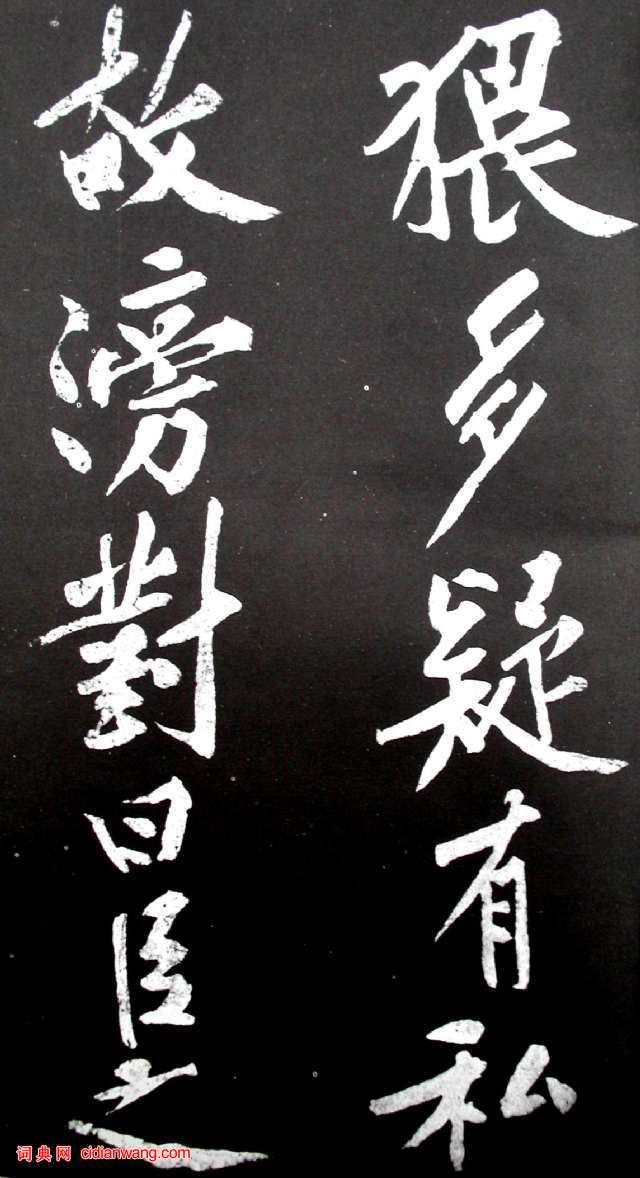 猥多疑有私
故滂對曰臣之
词典网 cidianwang.com